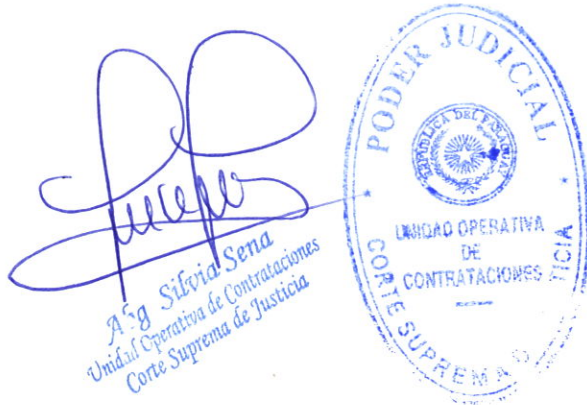 Abg Silvia Sena
Unidad Operativa de Contrataciones
Corte Suprema de Justicia
PODER JUDICIAL
REPUBLICA DEL PARAGUAY
UNIDAD OPERATIVA
DE
CONTRATACIONES
CORTE SUPREMA
TICIA